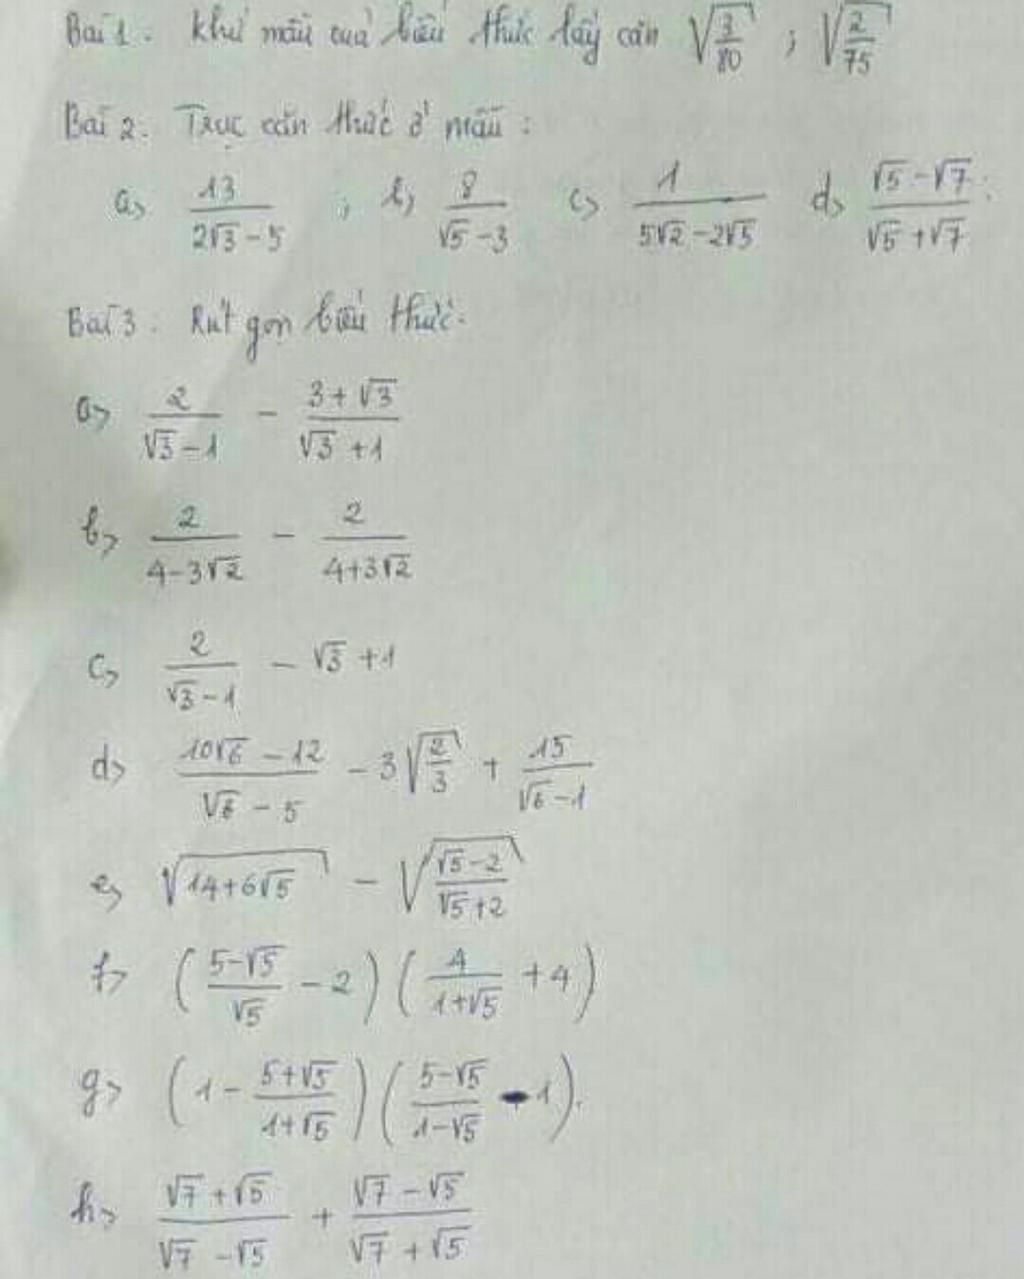 Bài 1. Khử mẫu của biểu thức lấy căn √(3/80) ; √(2/75)
Bài 2. Trục căn thức ở mẫu :
a> 13/(2√3 - 5) ; b> 8/(√5 - 3) c> 1/(5√2 - 2√5) d> (√5 - √7)/(√5 + √7) :
Bài 3. Rút gọn biểu thức.
a> 2/(√3 - 1) - (3 + √3)/(√3 + 1)
b> 2/(4 - 3√2) - 2/(4 + 3√2)
c> 2/(√3 - 1) - √3 + 1
d> (10√6 - 12)/(√6 - 5) - 3√(2/3) + 15/(√6 - 1)
e> √(14 + 6√5) - √((√5 - 2)/(√5 + 2))
f> ((5 - √5)/√5 - 2)(4/(1 + √5) + 4)
g> (1 - (5 + √5)/(1 + √5))((5 - √5)/(1 - √5) - 1).
h> (√7 + √5)/(√7 - √5) + (√7 - √5)/(√7 + √5)